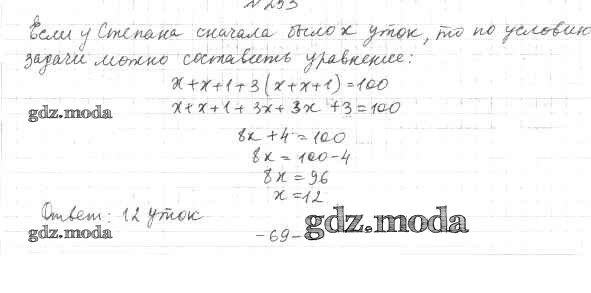 № 293
Если у Степана сначала было x уток, то по условию
задачи можно составить уравнение:
x+x+1+3(x+x+1)=100
x+x+1+3x+3x+3=100
gdz.moda
8x+4=100
8x=100-4
8x=96
x=12
Ответ: 12 уток
gdz.moda
-69-
gdz.moda